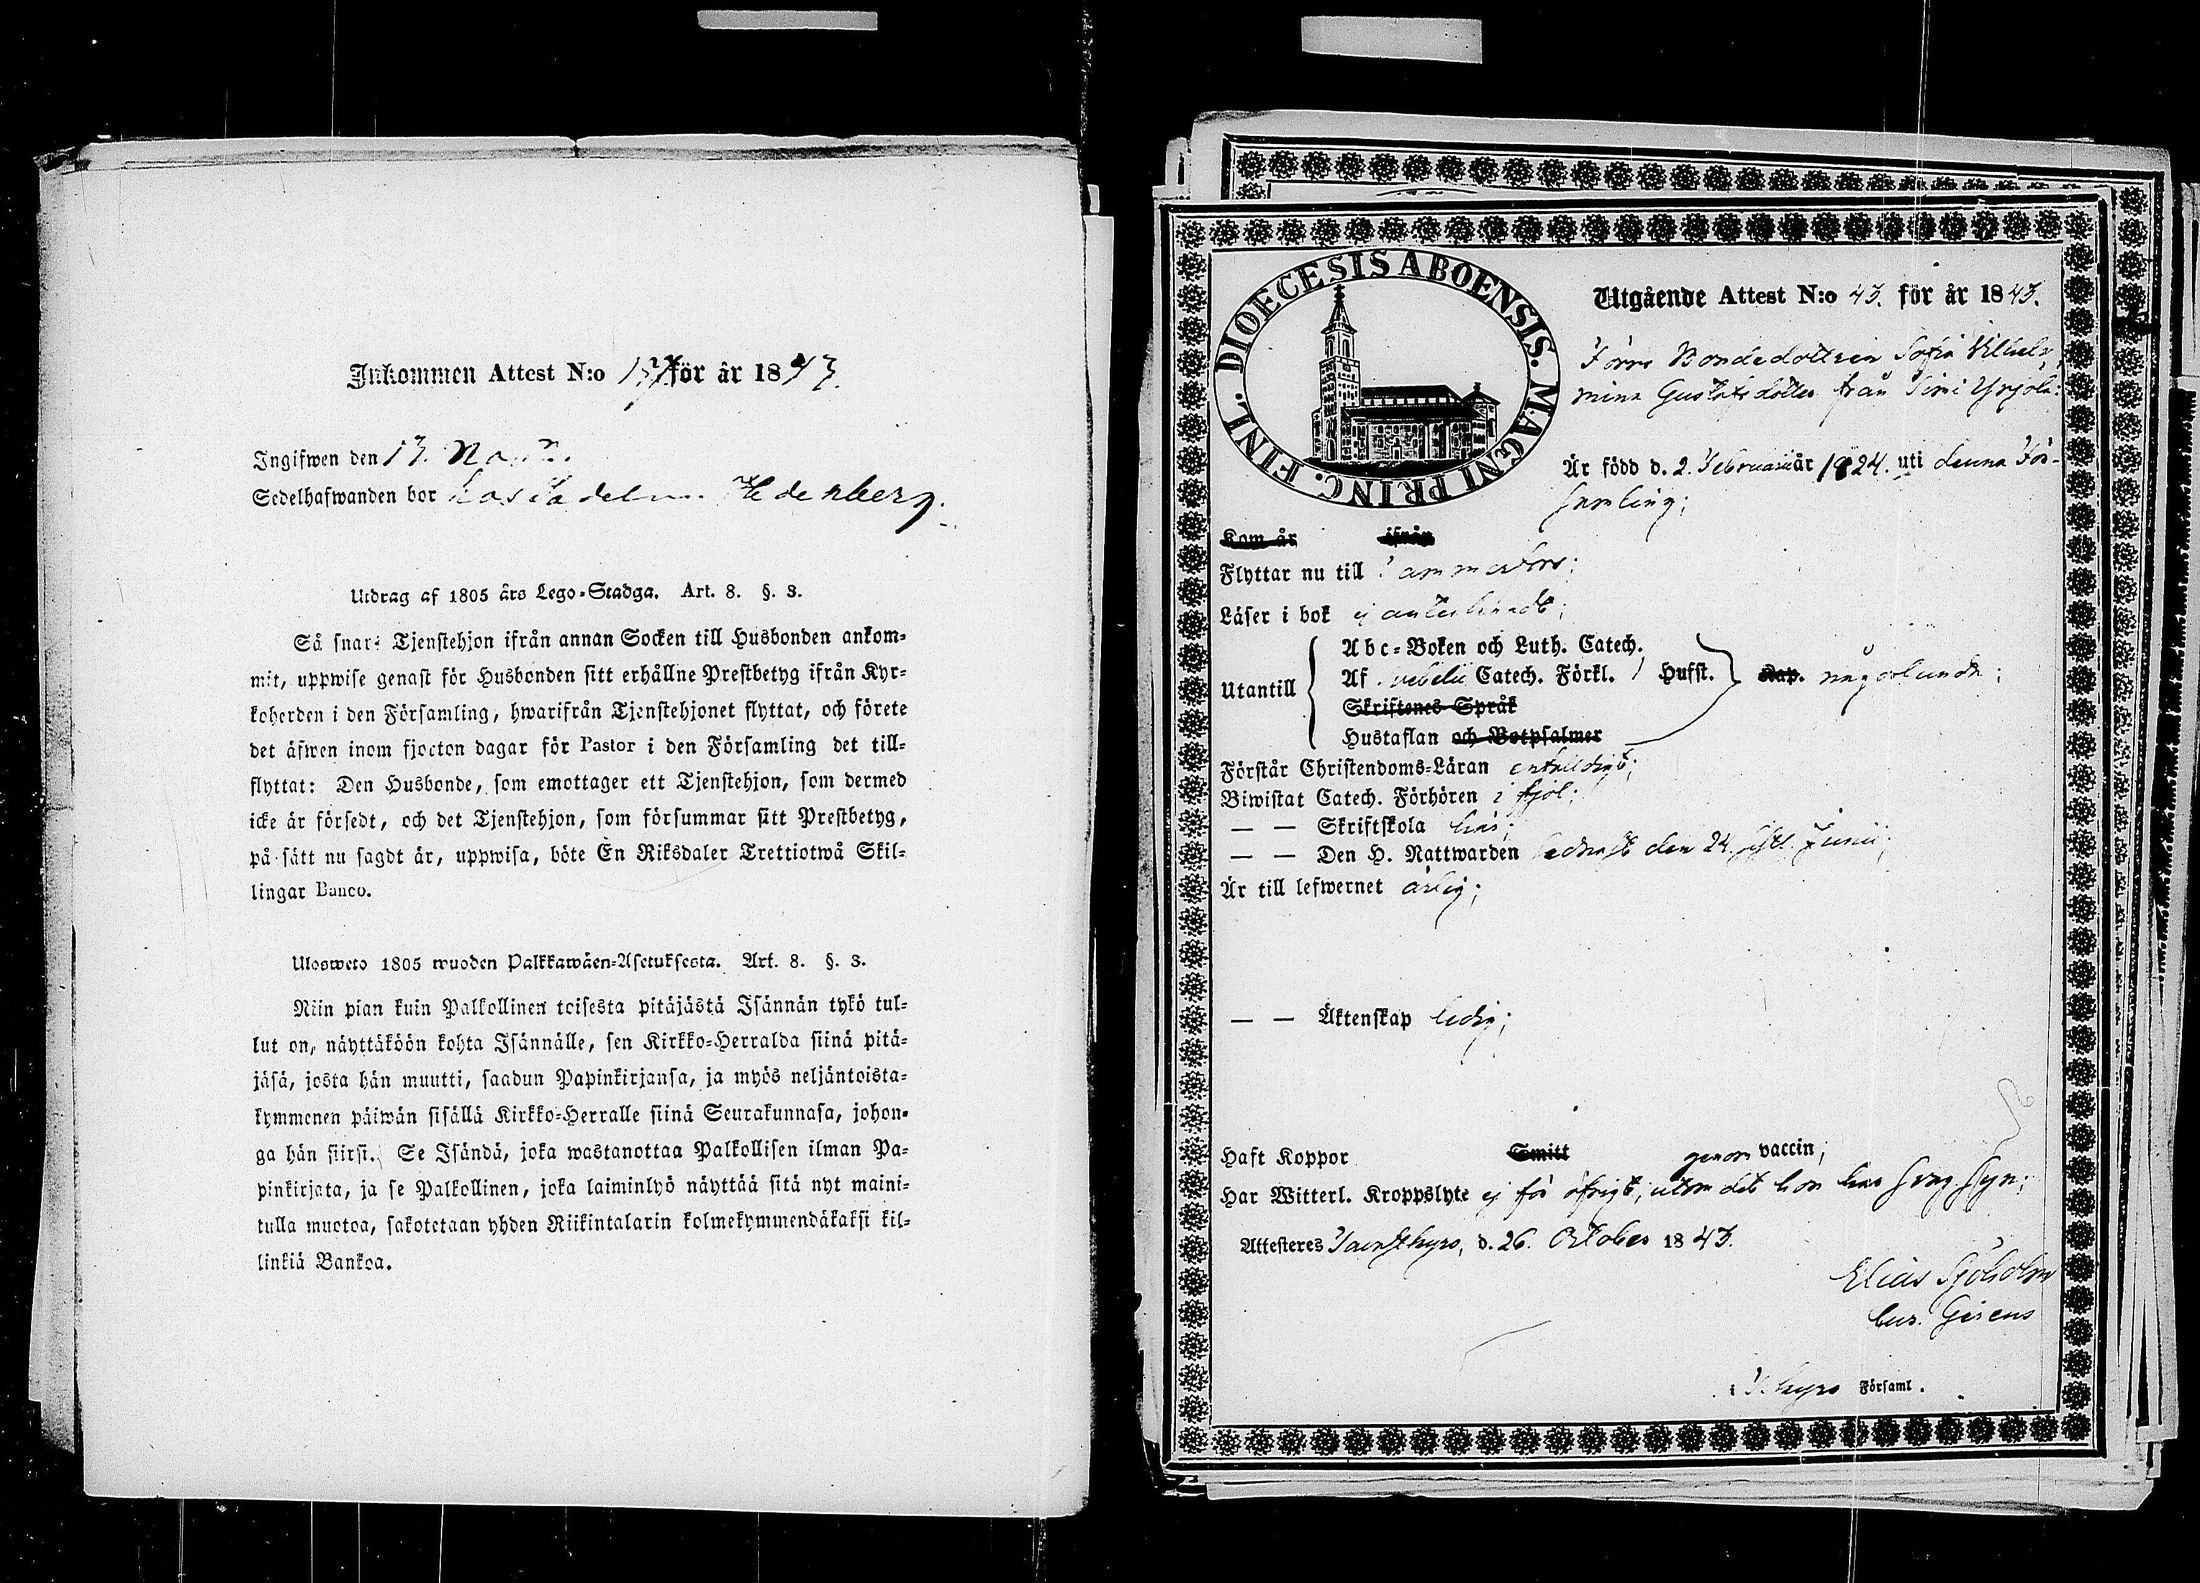 Inkommen Attest N:o 157 för år 1843.
Ingifwen den 13. Nov.
Sedelhafwanden bor hos Hedenberg.
Utdrag af 1805 års Lego-Stadga. Art. 8. §. 3.
Så snart Tjenstehjon ifrån annan Socken till Husbonden ankom-
mit, uppwise genast för Husbonden sitt erhållne Prestbetyg ifrån Kyr-
koherden i den Församling, hwarifrån Tjenstehjonet flyttat, och förete
det äfwen inom fjorton dagar för Pastor i den Församling det till-
flyttat: Den Husbonde, som emottager ett Tjenstehjon, som dermed
icke är försedt, och det Tjenstehjon, som försummar sitt Prestbetyg,
på sätt nu sagdt är, uppwisa, böte En Riksdaler Trettiotwå Skil-
lingar Banco.
Ulosweto 1805 wuoden Palkkawäen-Asetuksesta. Art. 8. §. 3.
Niin pian kuin Palkollinen toisesta pitäjästä Isännän tykö tul-
lut on, näyttäköön kohta Isännälle, sen Kirkko-Herralda siinä pitä-
jäsä, josta hän muutti, saadun Papinkirjansa, ja myös neljäntoista-
kymmenen päiwän sisällä Kirkko-Herralle siinä Seurakunnasa, johon-
ga hän siirsi. Se Isändä, joka wastanottaa Palkollisen ilman Pa-
pinkirjata, ja se Palkollinen, joka laiminlyö näyttää sitä nyt maini-
tulla muotoa, sakotetaan yhden Riikintalarin kolmekymmendäkaksi kil-
linkiä Bankoa.
DIOECESIS ABOENSIS. MAGNI PRINC. FINL.
Utgående Attest N:o 43. för år 1843.
Förra Bondedottren Sofia Vilhel-
mina Gustafsdotter från Timi Yrjölä:
Är född d. 2. Februarii år 1824. uti denna För-
samling;
Kom år ifrån
Flyttar nu till Tammerfors;
Läser i bok ej antecknadt;
Abc-Boken och Luth. Catech.
Utantill Af Svebelii Catech. Förkl. 1 Hufst. Kap. någorlunda;
Skriftenes Språk
Hustaflan och Botpsalmer
Förstår Christendoms-Läran enfaldigt;
Biwistat Catech. Förhören i fjol;
— — Skriftskola här;
— — Den H. Nattwarden sednast den 24. sistl. Junii;
Är till lefwernet ärlig;
— — Äktenskap ledig;
Haft Koppor Smitt genom vaccin;
Har Witterl. Kroppslyte ej för öfrigt, utom det hon har svag syn;
Attesteres Tavastkyro, d. 26. October 1843.
Elias Sjöholm
Cur. Gerens
i T. kyro Församl.